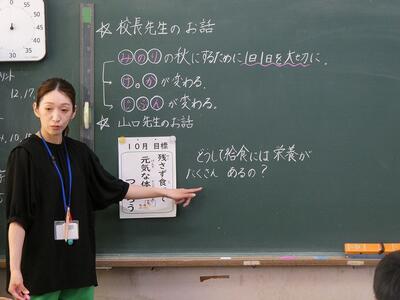 ☆ 校長先生のお話
みのりの秋にするために1日1日を大切に。
が変わる。
じぶんが変わる。
☆ 山口先生のお話
10月 目標
残さず食べて
元気な体を
つくろう
どうして給食には栄養が
たくさん あるの?
12, 17,
55
50
45
40
35